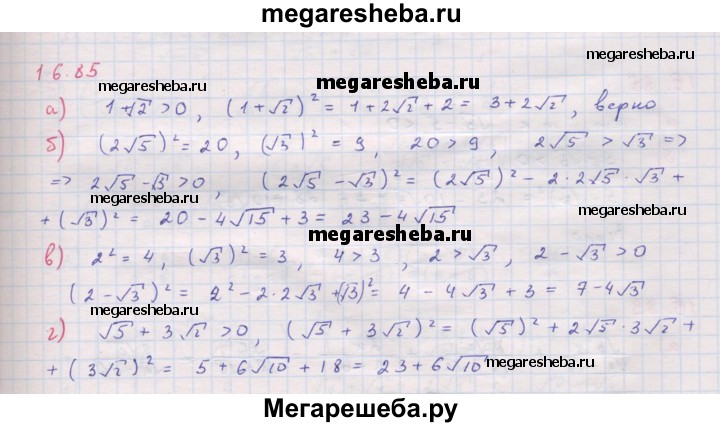 megaresheba.ru
16.85
megaresheba.ru
megaresheba.ru
megaresheba.ru
а) 1+√2 > 0, (1+√2)² = 1+2√2+2 = 3+2√2, верно
б) (2√5)² = 20, (√3)² = 9, 20 > 9, 2√5 > √3 =>
=> 2√5 - √3 > 0, (2√5 - √3)² = (2√5)² - 2·2√5·√3 +
+ (√3)² = 20 - 4√15 + 3 = 23 - 4√15
megaresheba.ru
в) 2² = 4, (√3)² = 3, 4 > 3, 2 > √3, 2 - √3 > 0
(2 - √3)² = 2² - 2·2√3 + (√3)² = 4 - 4√3 + 3 = 7 - 4√3
megaresheba.ru
г) √5 + 3√2 > 0, (√5 + 3√2)² = (√5)² + 2√5·3√2 +
+ (3√2)² = 5 + 6√10 + 18 = 23 + 6√10
megaresheba.ru
Мегарешеба.ру